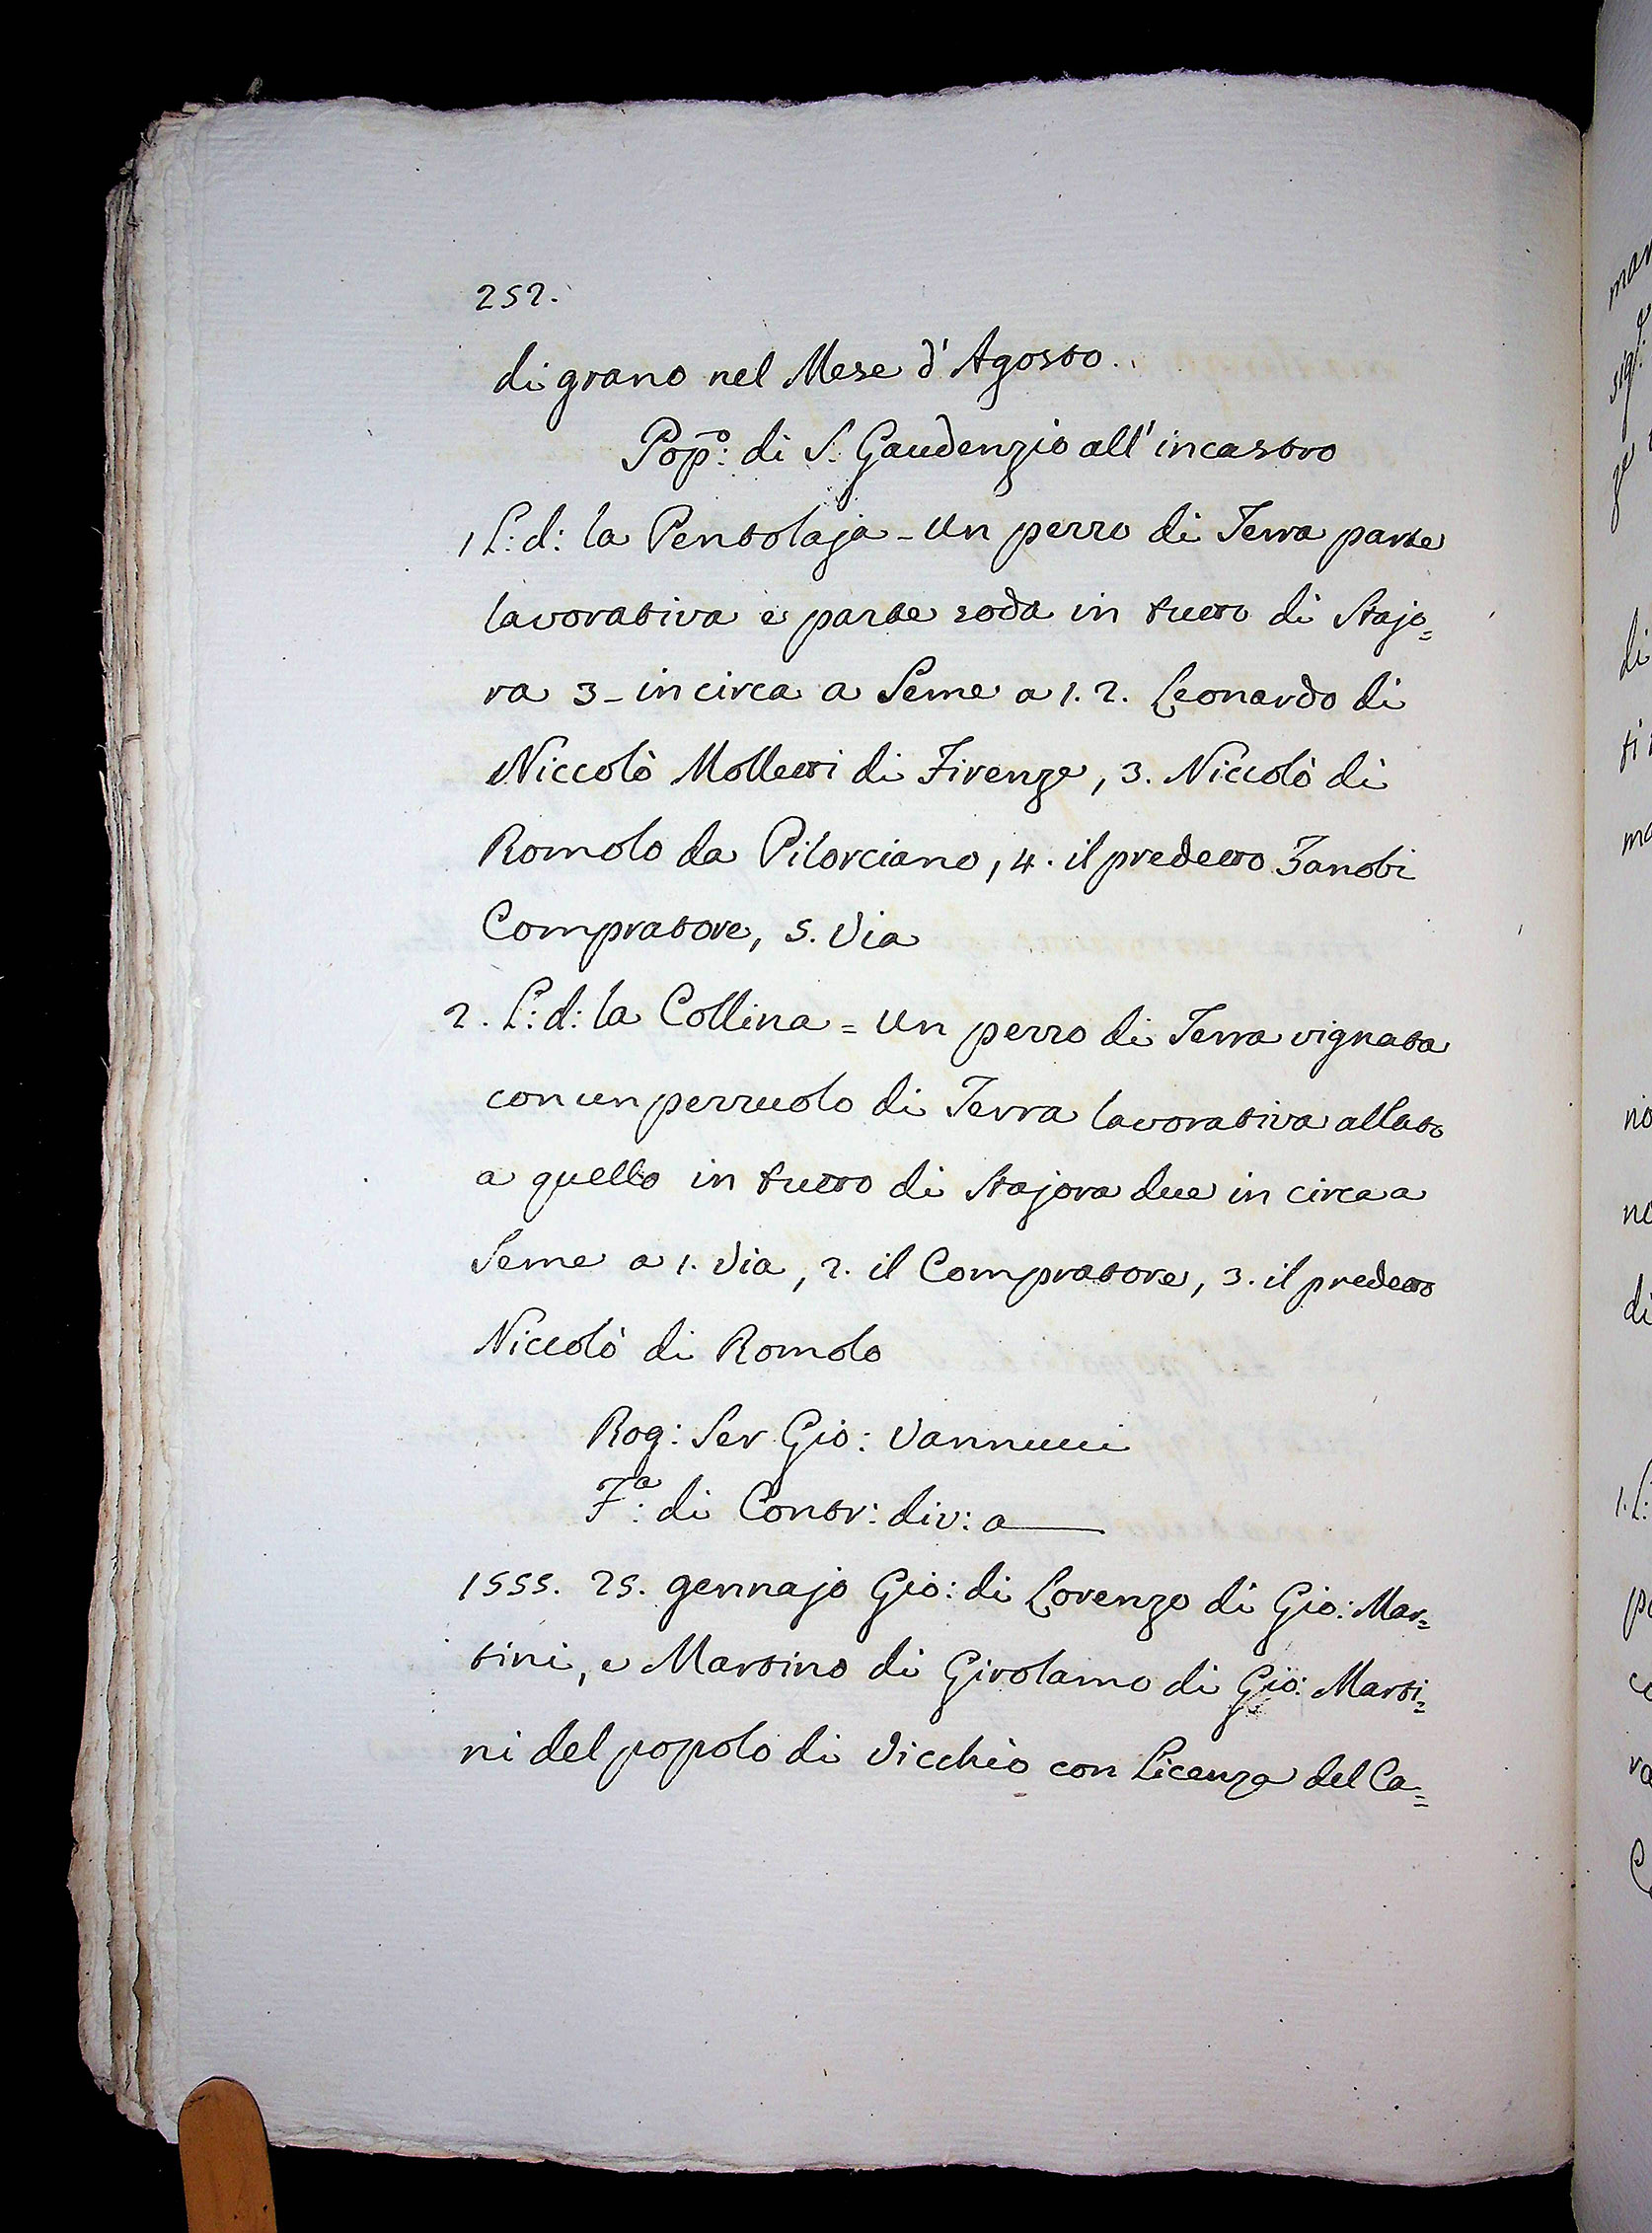 252.
di grano nel Mese d'Agosto.
Pop:º di S. Gaudenzio all'incastro
1 L: d: la Pentolaja - Un pezzo di Terra parte
lavorativa e parte soda in tutto di Stajo=
ra 3 - in circa a Seme a 1. 2. Leonardo di
Niccolò Molletti di Firenze, 3. Niccolò di
Romolo da Pilorciano, 4. il predetto Zanobi
Compratore, 5. Via
2. L: d: la Collina = Un pezzo di Terra vignata
con un pezzuolo di Terra lavorativa allato
a quello in tutto di Stajora due in circa a
Seme a 1. Via, 2. il Compratore, 3. il predetto
Niccolò di Romolo
Rog: Ser Gio: Vannucci
F:ª di Contr: div: a
1555. 25. gennajo Gio: di Lorenzo di Gio: Mar=
tini, e Martino di Girolamo di Gio: Marti=
ni del popolo di Vicchio con Licenza del Ca=